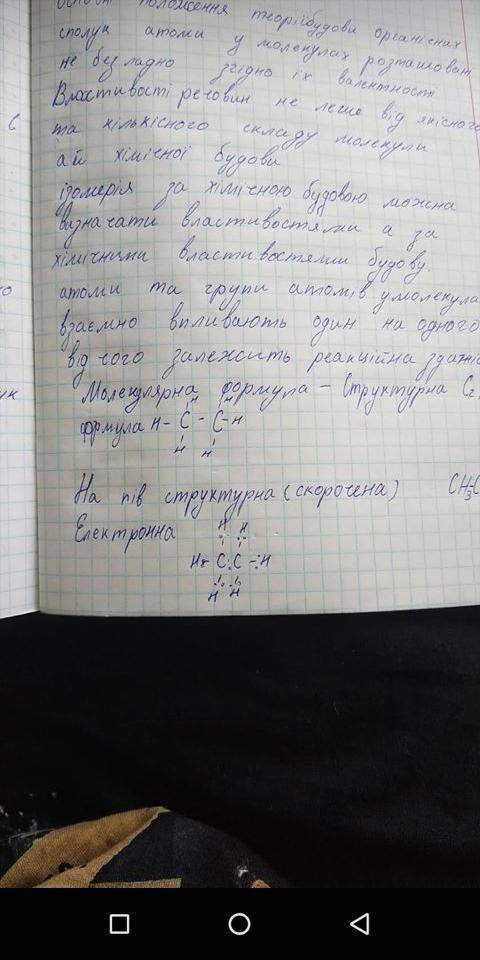 основні положення теоріїбудови органічних
сполук атоми у молекулах розташован
не безладно згідно їх валентності
Властивості речовин не леше від якісного
та кількісного складу молекули
а й хімічної будови
ізомерія за хімічною будовою можна
визначати властивостями а за
хімічними властивостями будову.
атоми та групи атомів у молекула
взаємно впливають один на одного
від чого залежить реакційна здатніс
Молекулярна формула – Структурна C2
формула H - C - C - H
H H
H H
На пів структурна (скорочена) CH3C
Електронна
H H
H C : C H
H H